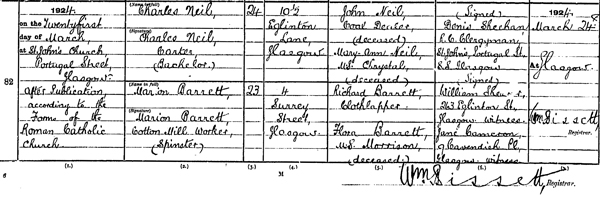 1924
on the Twentyfirst
day of March,
at St John's Church,
Portugal Street,
Glasgow
After Publication,
according to the
Forms of the
Roman Catholic
Church
82
(Name in full)
Charles Neil,
(Signature)
Charles Neil,
Carter
(Bachelor)
(Name in full)
Marion Barrett,
(Signature)
Marion Barrett
Cotton Mill Worker,
(Spinster)
24
23
10½
Eglinton
Lane,
Glasgow
4
Surrey
Street,
Glasgow
John Neil,
Coal Dealer,
(deceased)
Mary Ann Neil,
M.S. Chrystal,
(deceased)
Richard Barrett,
Clothlapper.
Flora Barrett,
M.S. Morrison,
(deceased)
(Signed)
Denis Sheehan,
R.C. Clergyman,
St John's, Portugal St.
S.S. Glasgow
(Signed)
William
Eglinton St.,
Glasgow witness.
Jane Cameron,
9 Cavendish Pl,
Glasgow witness
1924
March 24th
At Glasgow.
Wm Bissett,
Registrar.
(1.)
(2.)
(3.)
(4.)
(5.)
(6.)
(7.)
M
Wm Bissett, Registrar.